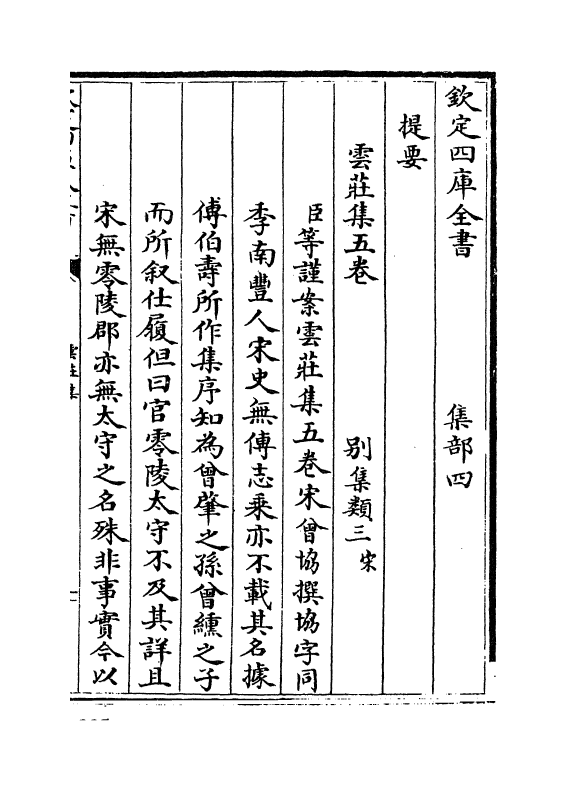 欽定四庫全書　集部四
提要
雲莊集五卷　別集類三宋
臣等謹案雲莊集五卷宋曾協撰協字同
季南豐人宋史無傳志乘亦不載其名據
傅伯壽所作集序知為曾肇之孫曾纁之子
而所叙仕履但曰官零陵太守不及其詳且
宋無零陵郡亦無太守之名殊非事實今以
雲莊集